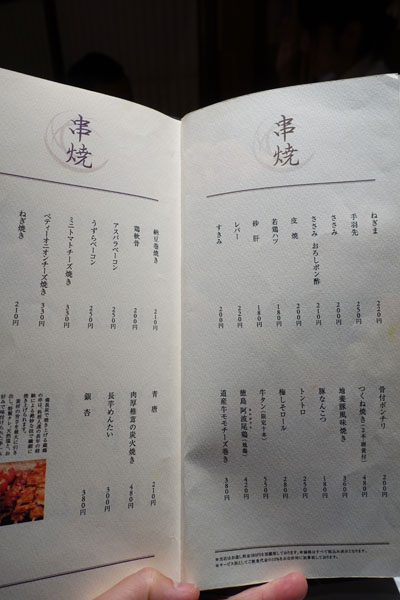 串焼
ねぎま 220円
手羽先 250円
ささみ 200円
ささみ おろしポン酢 210円
皮焼 200円
若鶏ハツ 180円
砂肝 180円
レバー 220円
すさみ 200円
骨付ボンチリ 200円
つくね焼き 480円
地養豚風味焼き 360円
豚なんこつ 180円
トントロ 250円
梅しそロール 280円
牛タン(限定十本) 550円
徳島 阿波尾鶏(地鶏) 420円
道産牛モモチーズ巻き 380円
串焼
納豆巻焼き 210円
鶏軟骨 200円
アスパラベーコン 250円
うずらベーコン 250円
ミニトマトチーズ焼き 330円
ペティーオニオンチーズ焼き 330円
ねぎ焼き 210円
青唐 210円
肉厚椎茸の炭火焼き 480円
長芋めんたい 300円
銀杏 380円